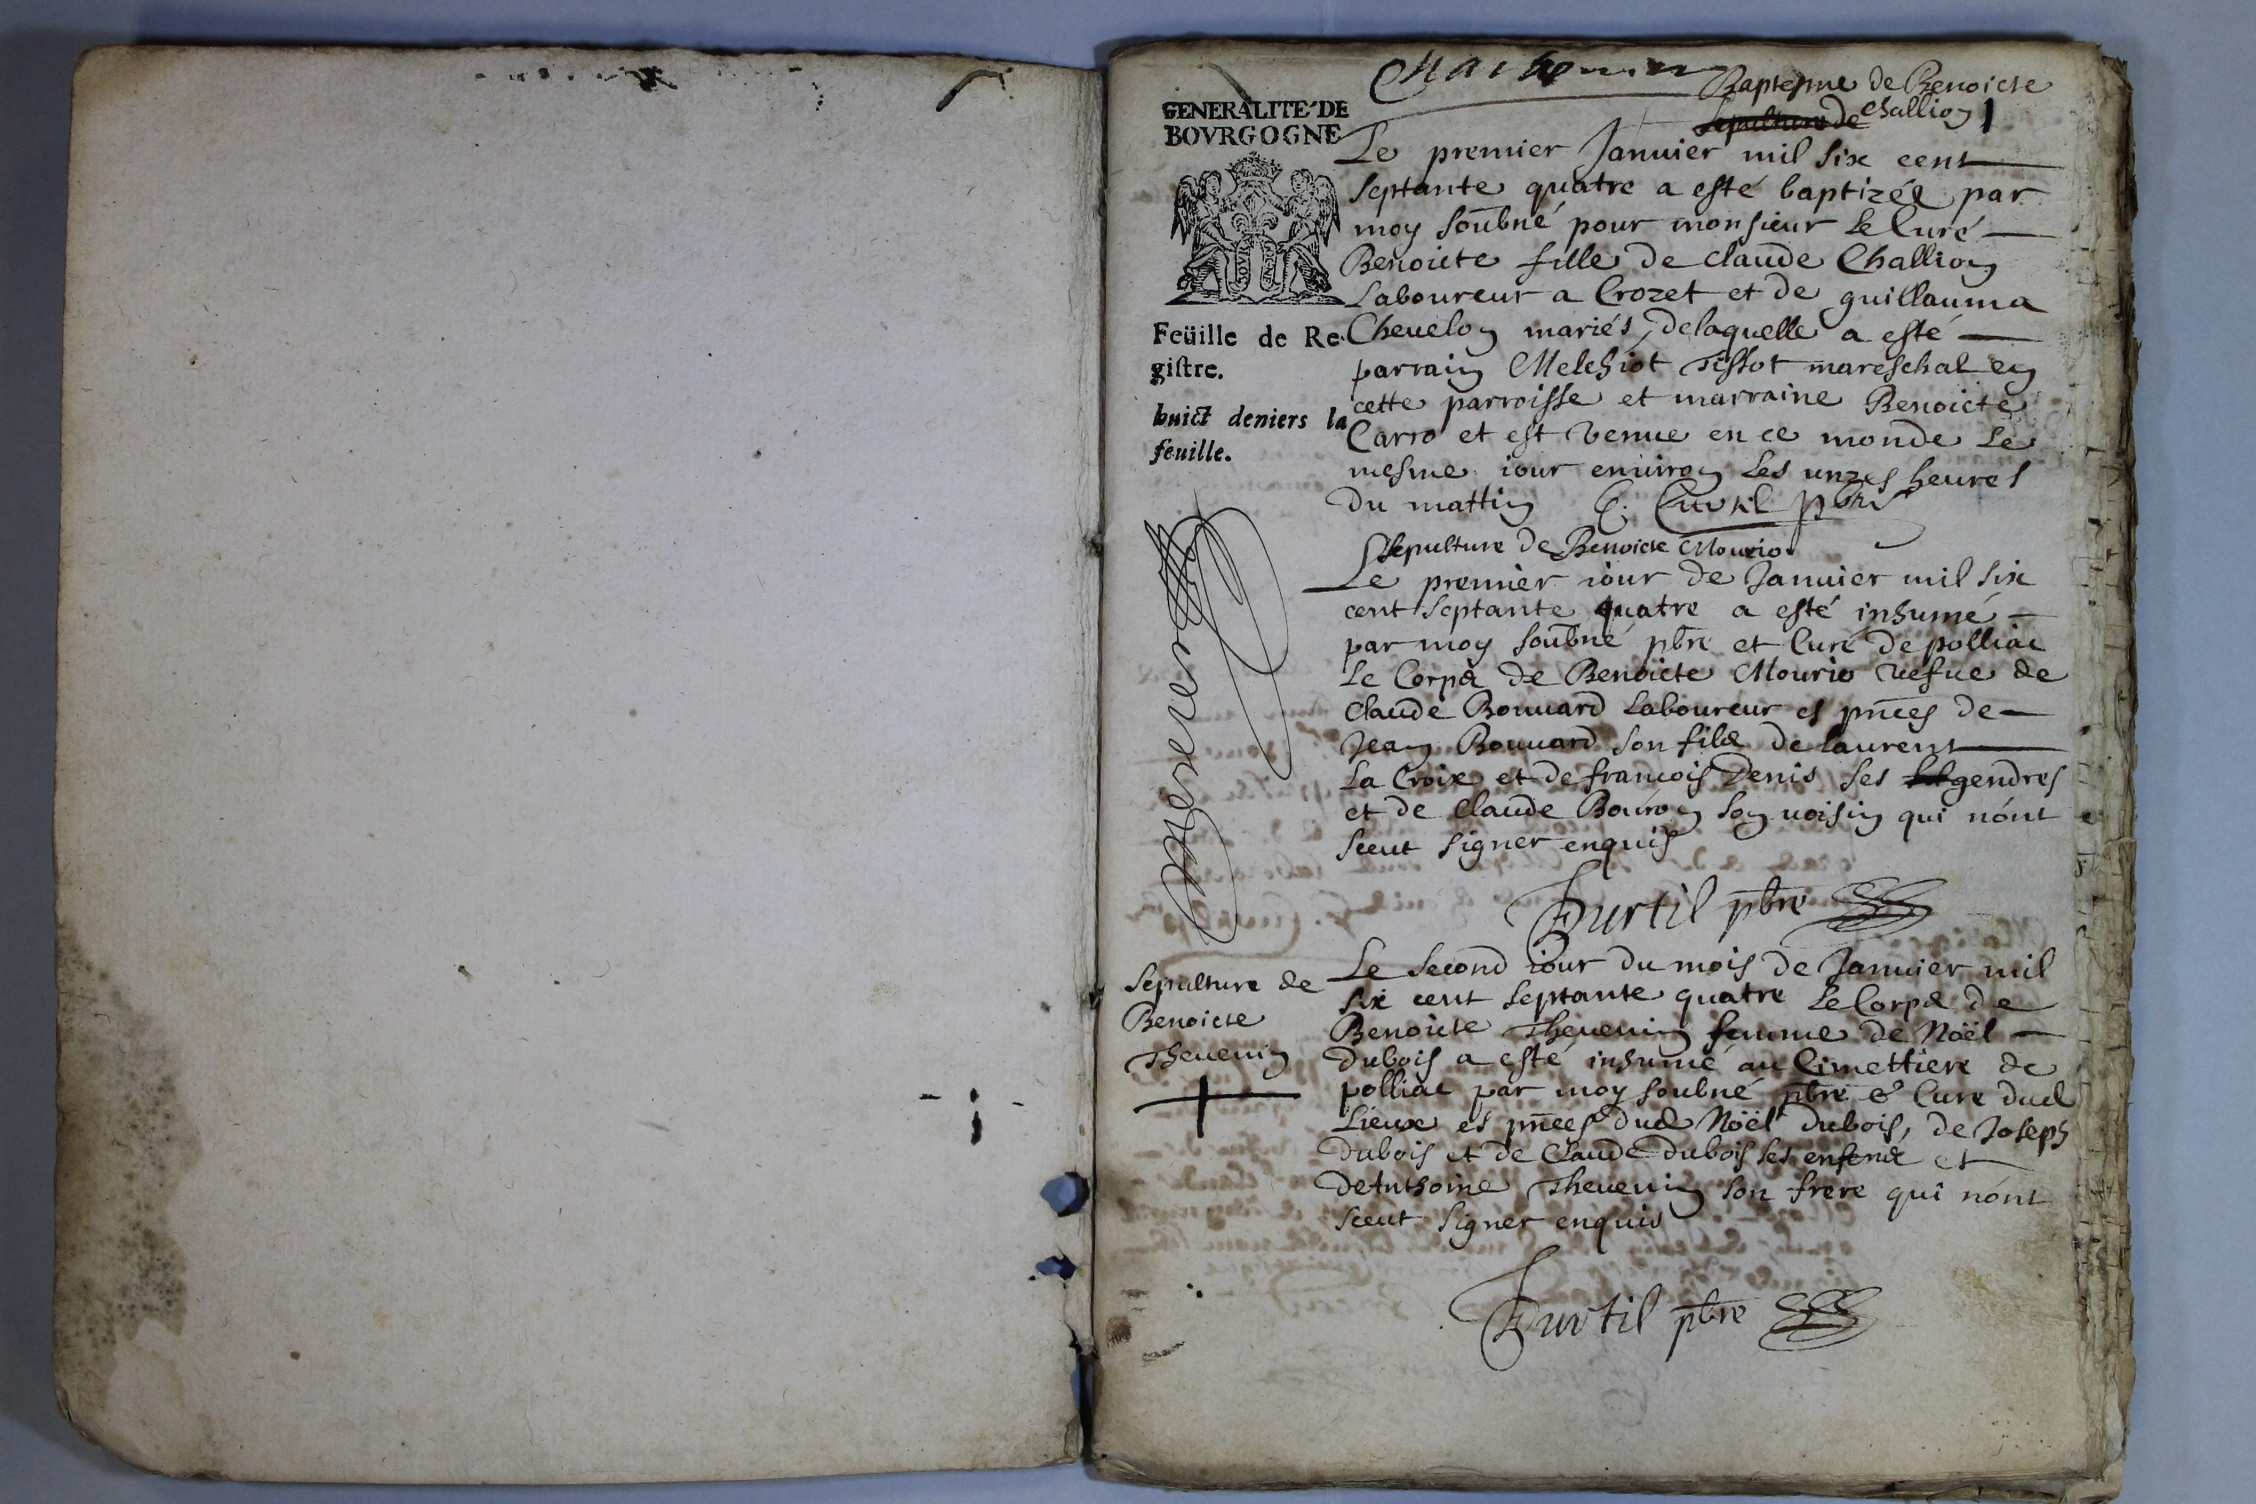 Baptesme de Benoicte
sepulture de Challion 1
GENERALITE DE
BOVRGOGNE
Le premier Januier mil six cent
septante quatre a esté baptizée par
moy soubné pour monsieur le Curé
Benoicte fille de claude Challion
Laboureur a Crozet et de guillauma
Cheuelon mariés, delaquelle a esté
parrain Melchiot Tissot mareschal en
cette parroisse et marraine Benoicte
Carro et est venue en ce monde le
mesme iour enuiron les unzes heures
du mattin C. Curtil pbre
Feüille de Re-
gistre.
huict deniers la
feuille.
Sepulture de Benoicte Mourio
Le premier iour de Januier mil six
cent septante quatre a esté inhumé
par moy soubné pbre et Curé de polliac
Le Corps de Benoicte Mourio vefue de
Claude Bouuard Laboureur es pnces de
Jean Bouuard son fils de laurent
La Croix et de francois Denis ses gendres
et de Claude Bouron son uoisin qui nont
sceut signer enquis
Curtil pbre
Sepulture de
Benoicte
Theuenin
Le second iour du mois de Januier mil
six cent septante quatre Le Corps de
Benoicte Theuenin femme de Noël
dubois a esté inhumé au Cimettiere de
polliac par moy soubné pbre & Cure dud
Lieux es pnces dud Noël dubois, de Joseph
dubois et de Claude dubois ses enfens et
de Anthoine Theuenin son frere qui nont
sceut signer enquis
Curtil pbre